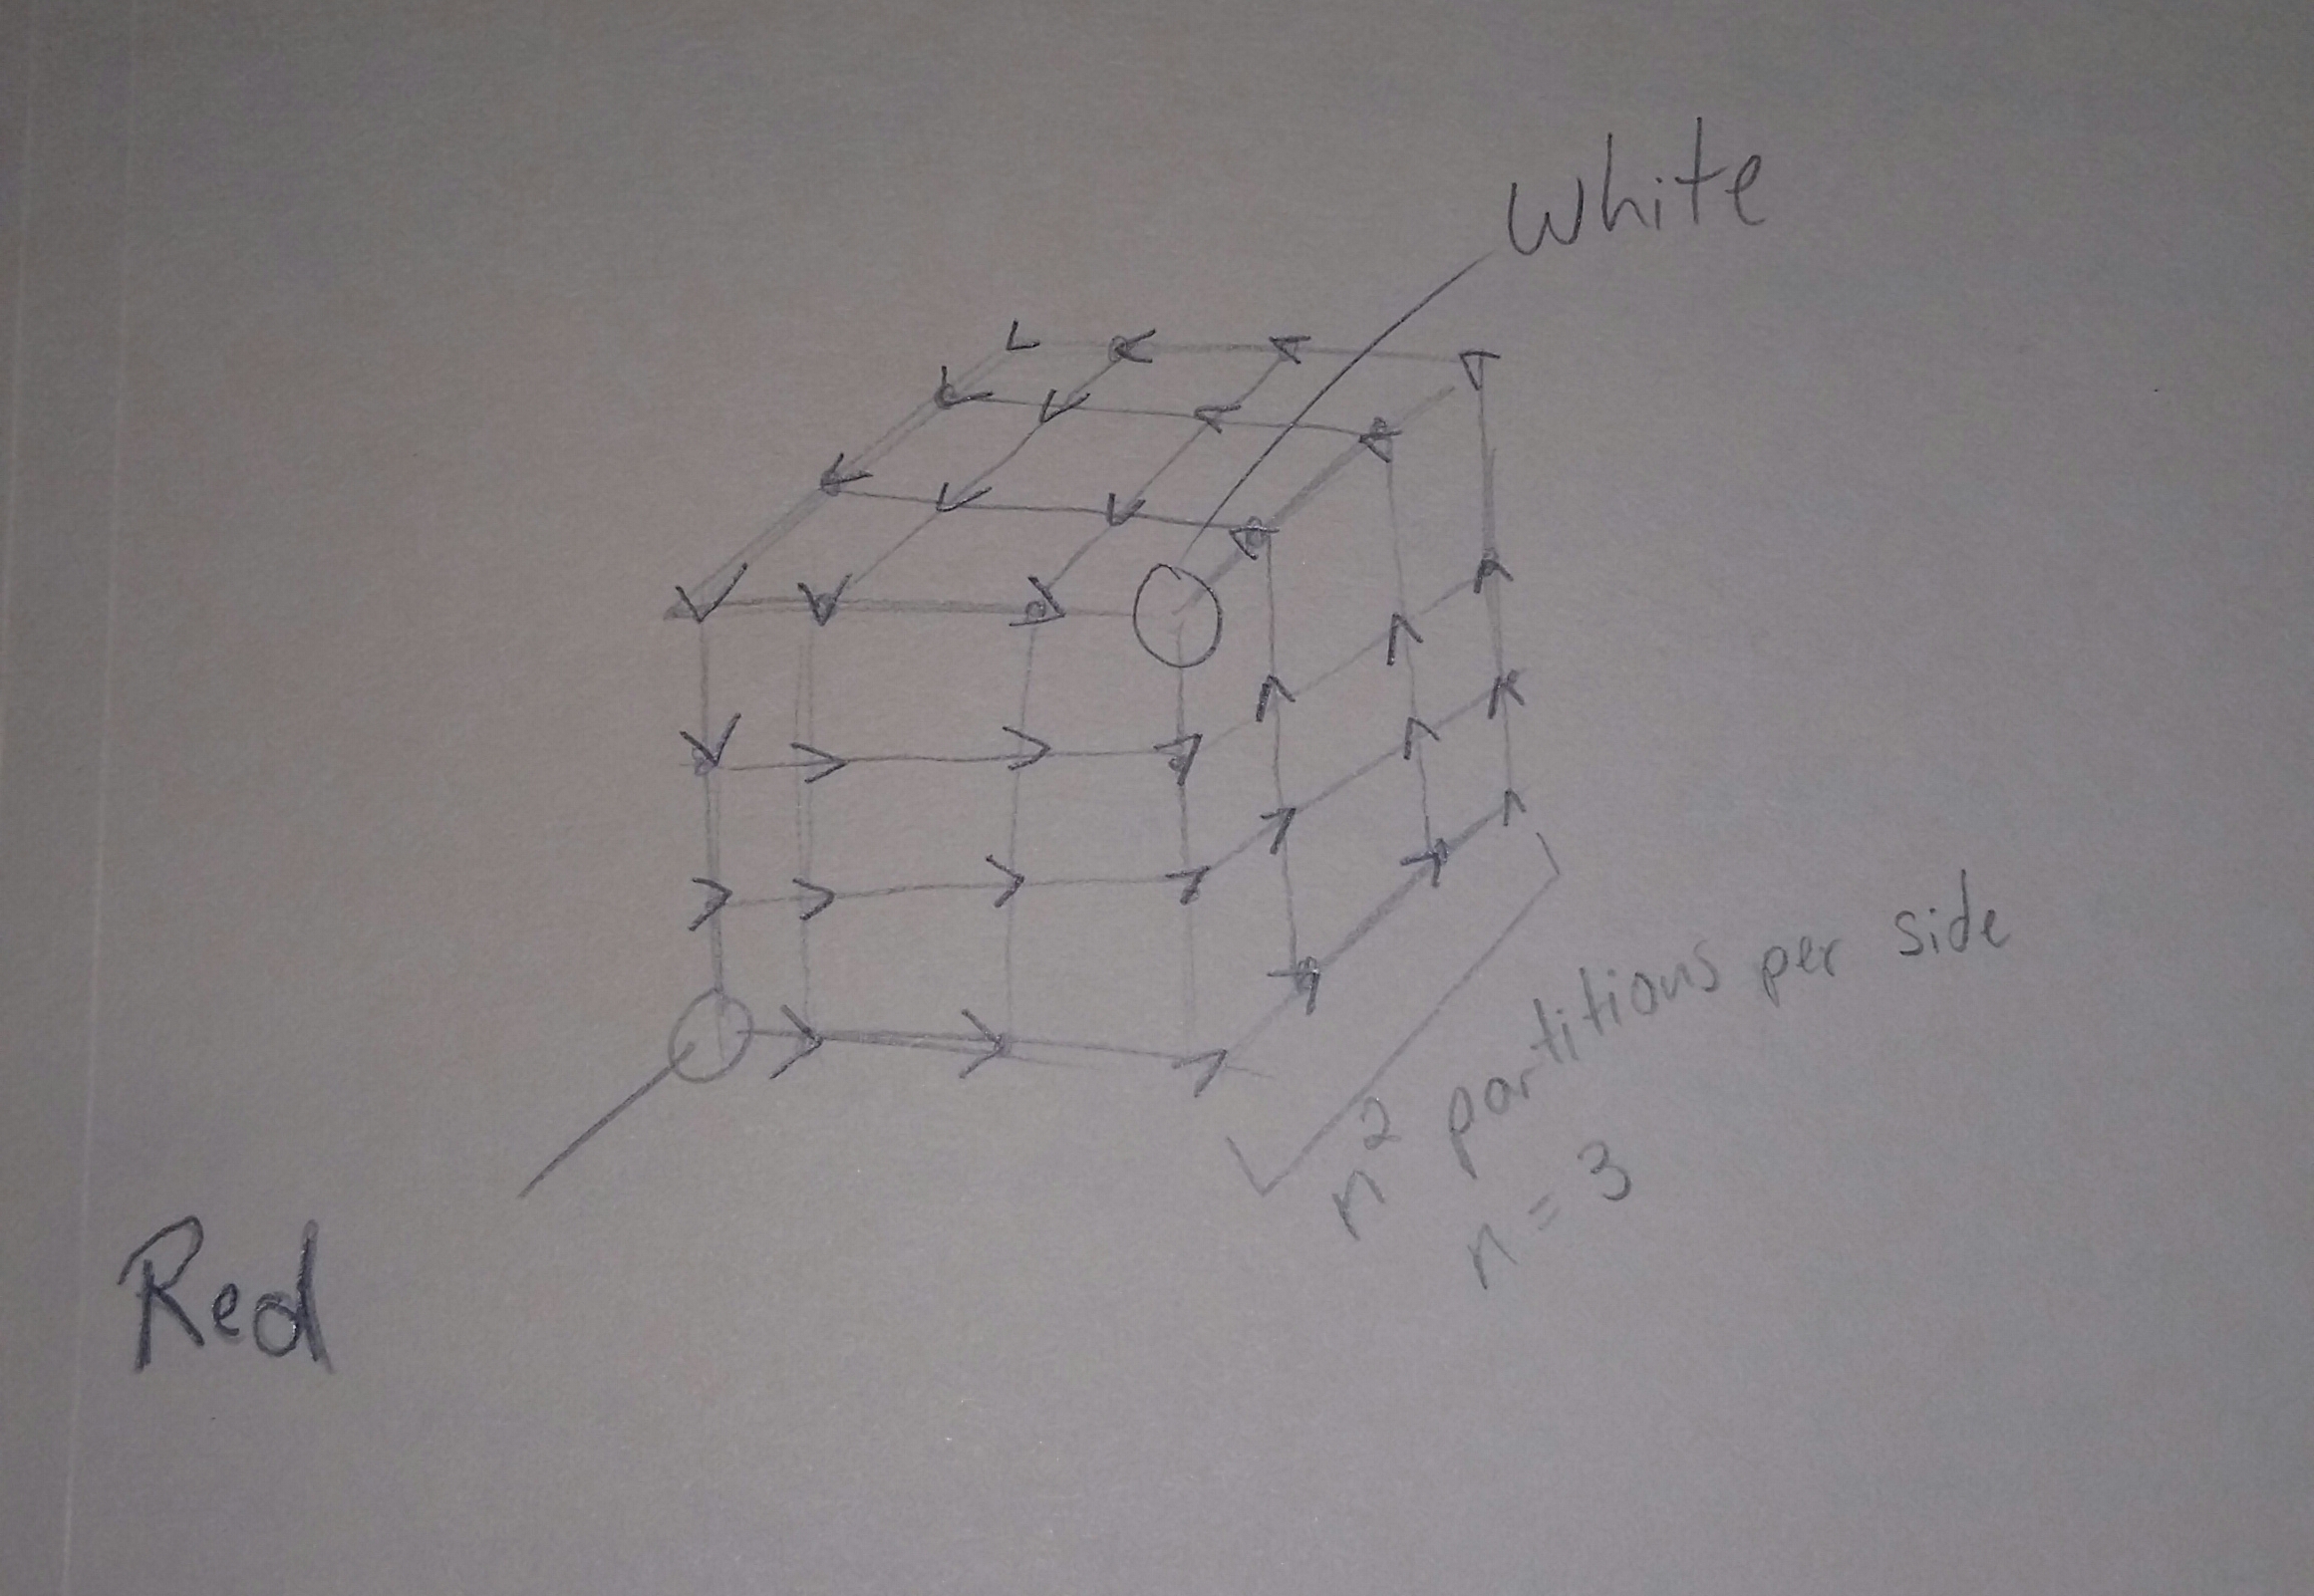 White
n² partitions per side
n = 3
Red